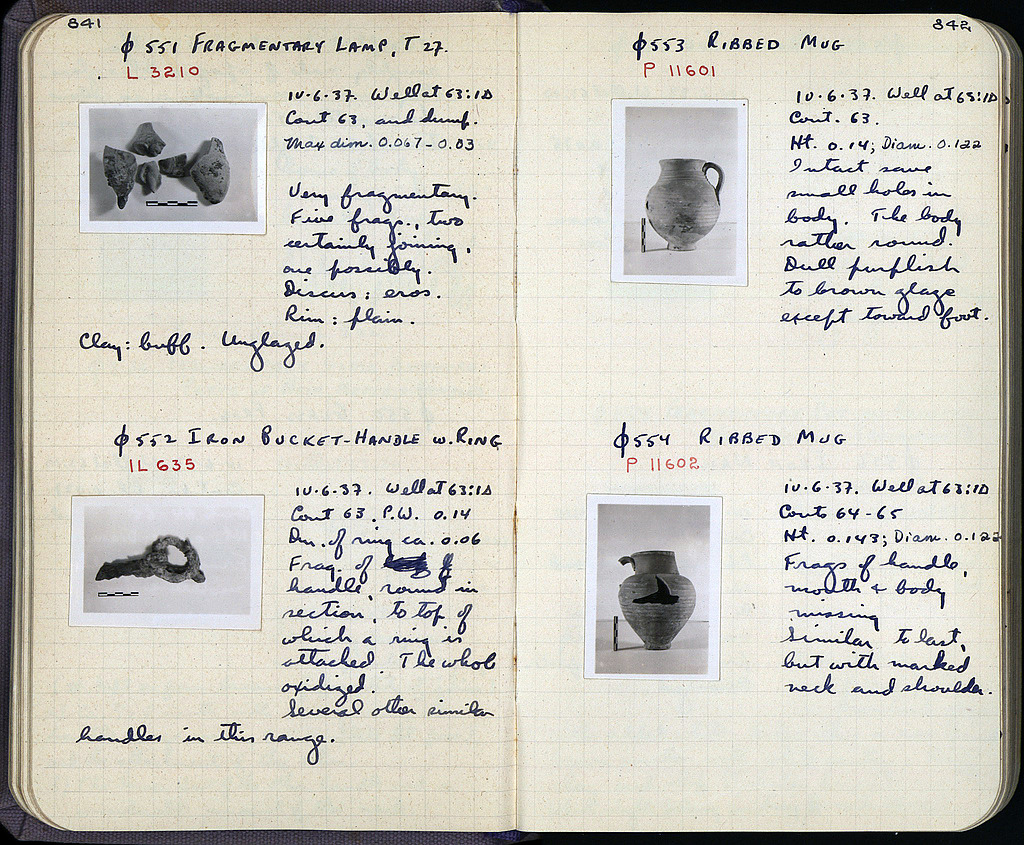 841
φ 551 FRAGMENTARY LAMP, T 27.
L 3210
10·6·37. Well at 63:ΙΔ
Cont 63, and dump.
Max dim. 0.067 - 0.03
Very fragmentary.
Five frags., two
certainly joining,
one possibly.
Discus: eros.
Rim: plain.
Clay: buff. Unglazed.
φ 552 IRON BUCKET-HANDLE W. RING
IL 635
10·6·37. Well at 63:ΙΔ
Cont 63. P.W. 0.14
Dm. of ring ca. 0.06
Frag. of
handle, round in
section, to top of
which a ring is
attached. The whole
oxidized.
Several other similar
handles in this range.
842
φ553 RIBBED MUG
P 11601
10·6·37. Well at 63:ΙΔ
Cont. 63.
Ht. 0.14; Diam. 0.122
Intact save
small holes in
body. The body
rather round.
Dull purplish
to brown glaze
except toward foot.
φ554 RIBBED MUG
P 11602
10·6·37. Well at 63:ΙΔ
Conts 64-65
Ht. 0.143; Diam. 0.122
Frags of handle,
mouth & body
missing
Similar to last,
but with marked
neck and shoulder.